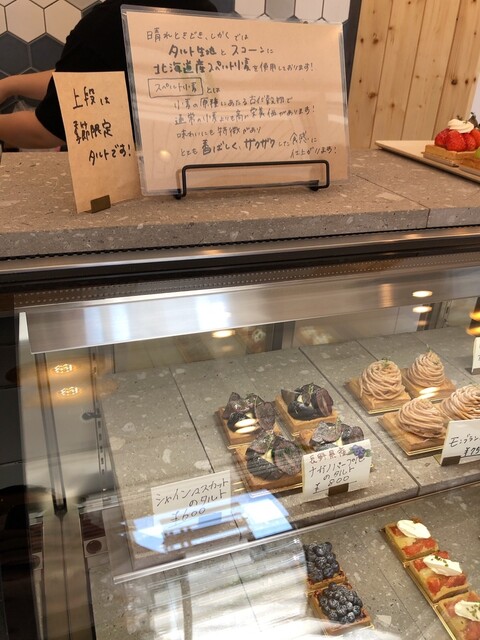 晴れときどき、しかくでは
タルト生地とスコーンに
北海道産スペルト小麦を使用しております!
スペルト小麦 とは
小麦の原種にあたる古代穀物で
通常の小麦よりも高い栄養価があります!
味わいにも特徴があり
とても香ばしく、ザクザクした食感に
仕上がります!
上段は
季節限定
タルトです!
シャインマスカット
のタルト
¥600
長野県産
ナガノパープル
のタルト
¥800
モンブラン